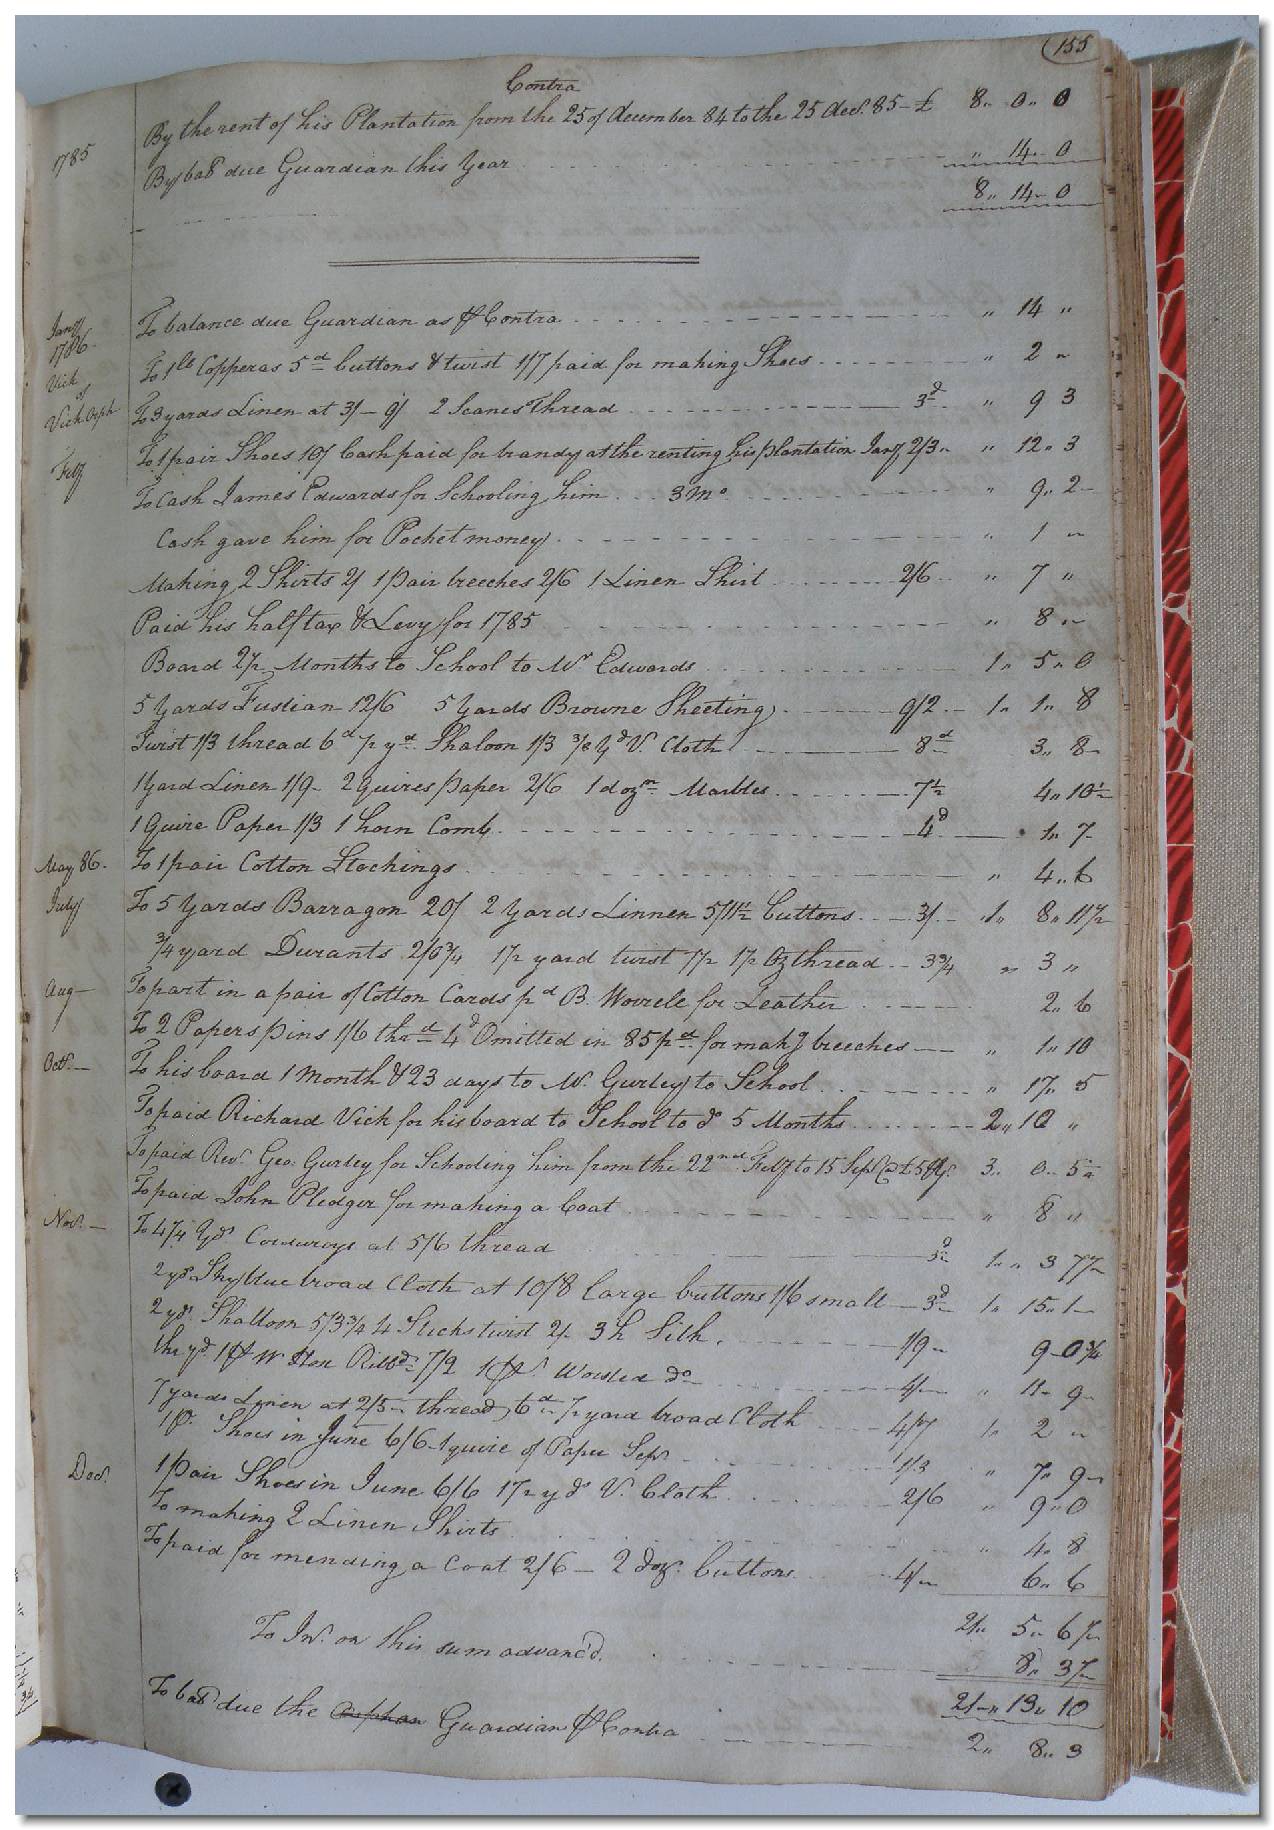 155
Contra
1785 By the rent of his Plantation from the 25 of december 84 to the 25 decr. 85 – £ 8 „ 0 „ 0
By bale due Guardian this Year „ 14 – 0
8 „ 14 – 0
Jany 1786. To balance due Guardian as ⅌ Contra „ 14 „
Vick To 1 lb Copperas 5d buttons & twist 1/7 paid for making Shoes „ 2 „
of
Vick Orph To 3 yards Linen at 3/– 9/ 2 Scanes Thread 3d „ 9 3
Feby To 1 pair Shoes 10/ Cash paid for brandy at the renting his plantation Jany 2/3 „ „ 12 „ 3
To Cash James Edwards for Schooling him 3 Mo „ 9 „ 2 –
Cash gave him for Pocket money „ 1 „
Making 2 Shirts 2/ 1 pair breeches 2/6 1 Linen Shirt 2/6 „ 7 „
Paid his half tax & Levy for 1785 „ 8 „
Board 2½ Months to School to Mr Edwards 1 „ 5 „ 0
5 Yards Fustian 12/6 5 Yards Browne Sheeting 9/2 – 1 „ 1 „ 8
Twist 1/3 thread 6d ½ yd Shaloon 1/3 ⅜ Yd V. Cloth 8d 3 „ 8 –
1 Yard Linen 1/9 – 2 Quires paper 2/6 1 dozn Marbles 7½ 4 „ 10½
1 Quire Paper 1/3 1 horn Comb 4d 1 „ 7 –
May 86. To 1 pair Cotton Stockings „ 4 „ 6
July To 5 Yards Barragon 20/ 2 Yards Linnen 5/11½ buttons 3/– 1 „ 8 „ 11½
¾ yard Durants 2/0¾ 1½ yard twist 7½ 1½ Oz thread – 3¾ „ 3 „
Aug – To part in a pair of Cotton Cards pd B. Worrele for Leather 2 „ 6
To 2 Papers pins 1/6 thrd 4d Omitted in 85 pd for makg breeches „ 1 „ 10
Octr. – To his board 1 Month & 23 days to Mr. Gurley to School „ 17 „ 5
To paid Richard Vick for his board to School to do 5 Months 2 „ 10 „
To paid Revd. Geo. Gurley for Schooling him from the 22nd Feby to 15 Sepr @ £5 3 „ 0 „ 5
To paid John Pledger for making a Coat „ 8 „
Novr. – To 4¼ Yds Corduroys at 5/6 thread 3d 1 „ „ 3 7½
2 yds Sky blue broad Cloth at 10/8 large buttons 1/6 small 3d 1 „ 15 „ 1 –
2 yds Shalloon 5/3¾ 4 Sticks twist 2/ 3 h Silk. 1/9 – 9 – 0¾
1 Ribd 7/9 1 Worsted do 4/– „ 11 „ 9 –
7 yards Linen at 2/5 – thread 6d ½ yard broad Cloth 4/7 1 „ 2 „
1 pr. Shoes in June 6/6 – 1 quire of Paper Sepr 1/3 „ 7 „ 9 –
Decr. 1 pair Shoes in June 6/6 1½ yds V. Cloth 2/6 „ 9 „ 0
To making 2 Linen Shirts „ 4 „ 8
To paid for mending a Coat 2/6 – 2 doz. buttons 4/– 6 „ 6
21 „ 5 „ 6½
To Int. on this sum advanc'd. 8 „ 3½
21 „ 13 „ 10
To bale due the Orphan Guardian ⅌ Contra 2 „ 8 „ 3